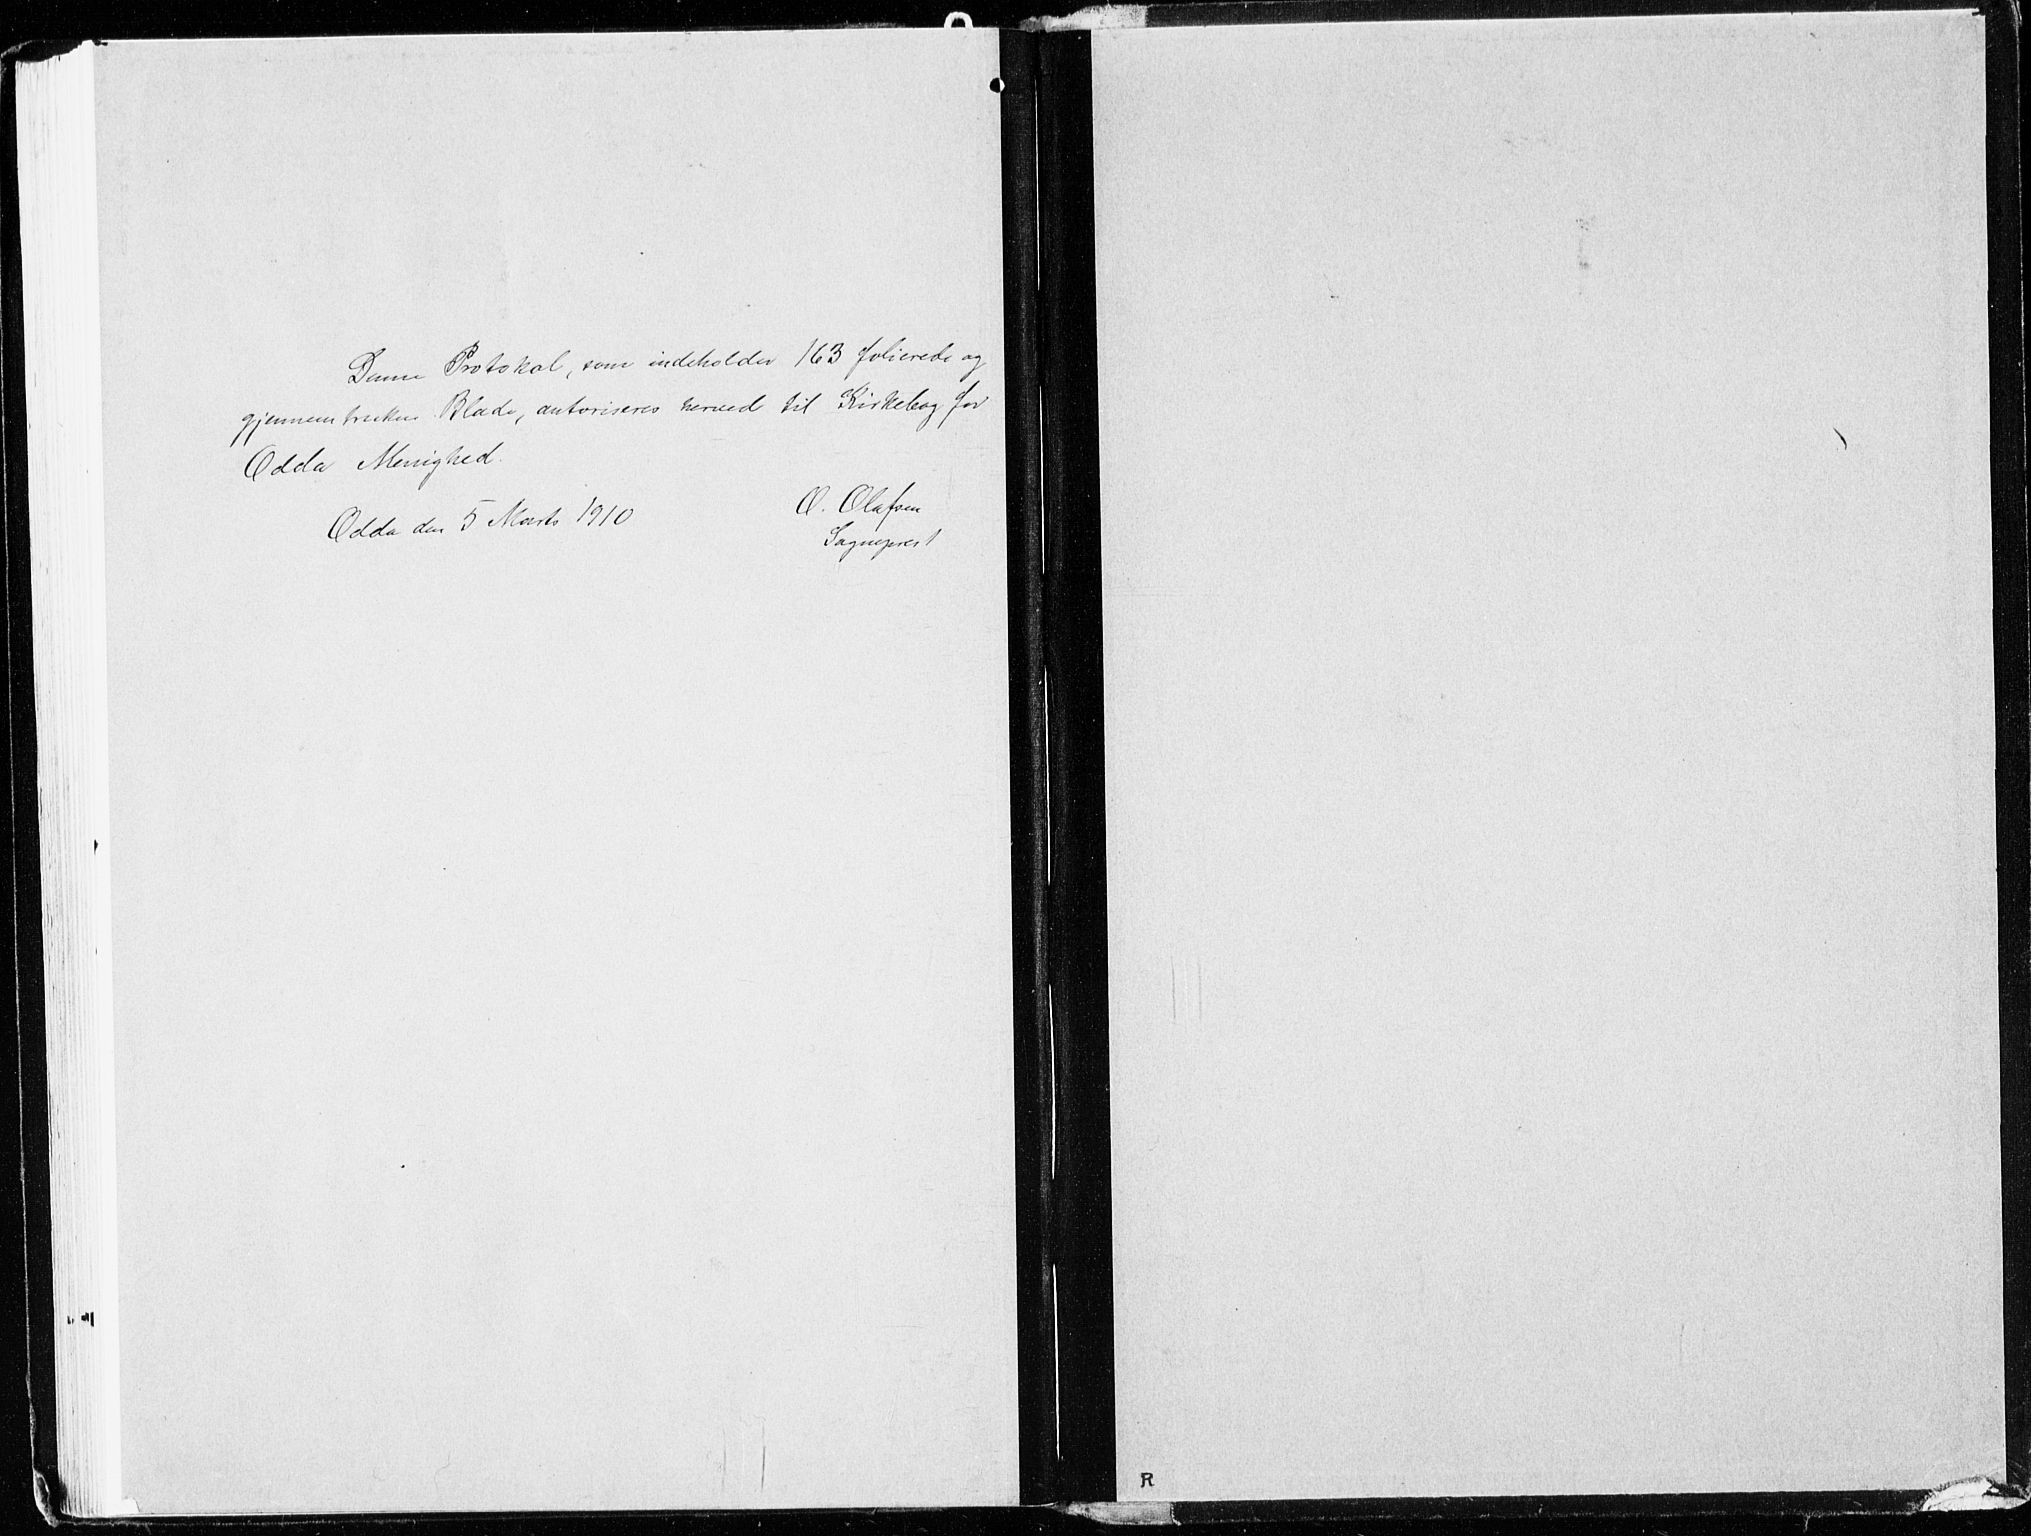 Denne Protokol, som indeholder 163 folierede og
gjennemtrukne Blade, autoriseres herved til Kirkebog for
Odda Menighed.
Odda den 5 Marts 1910
O. Olafsen
Sogneprest
R